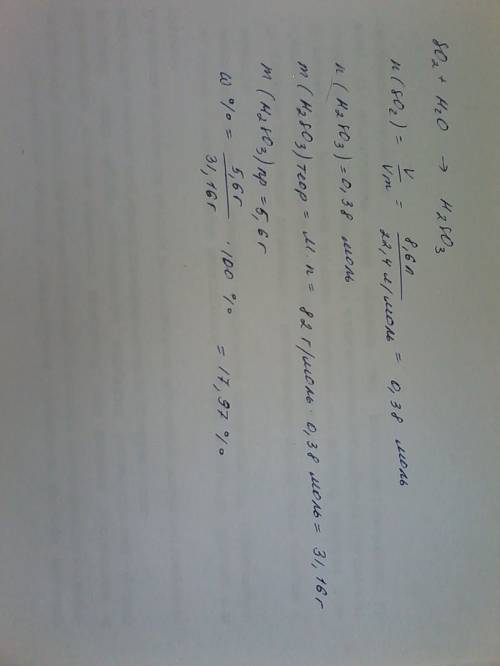 SO₂ + H₂O → H₂SO₃
n(SO₂) = V/Vm = 8,6л/22,4 л/моль = 0,38 моль
n(H₂SO₃) = 0,38 моль
m(H₂SO₃)теор = M·n = 82 г/моль · 0,38 моль = 31,16 г
m(H₂SO₃)пр = 5,6 г
W % = 5,6г/31,16г · 100 % = 17,97 %